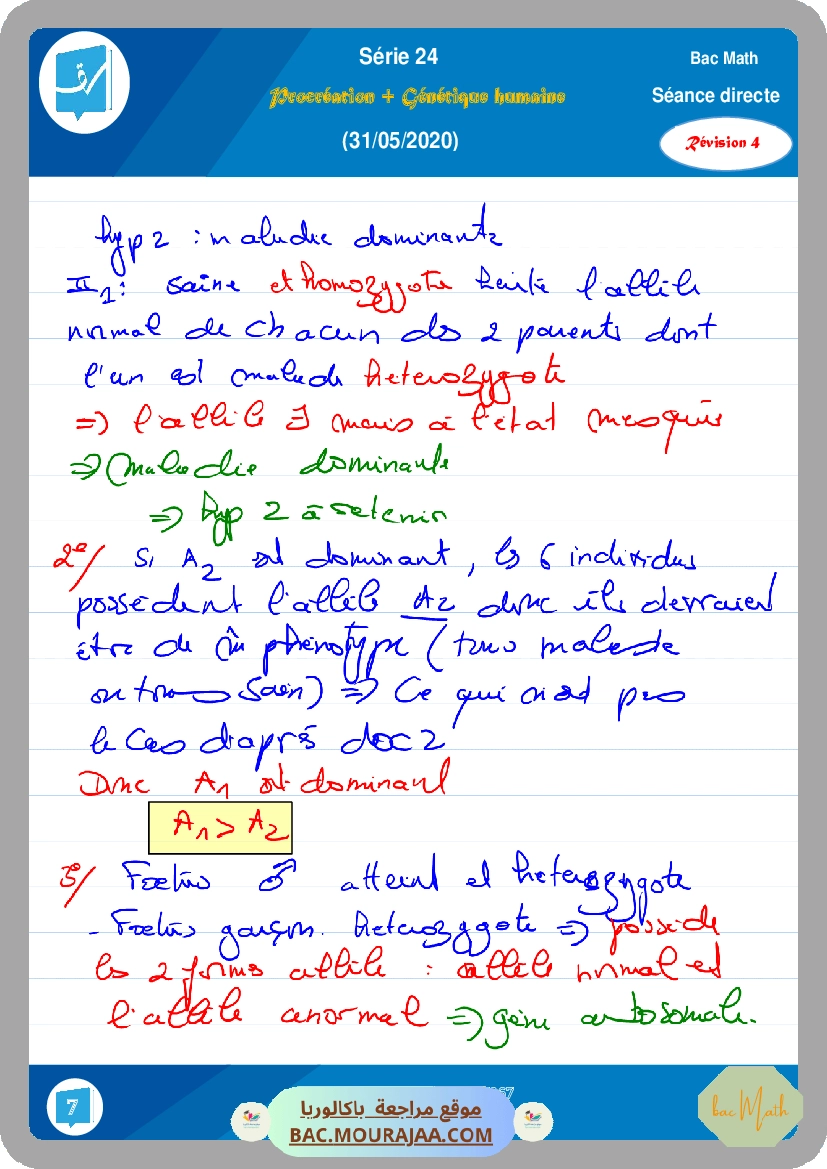 Série 24
Bac Math
Procréation + Génétique humaine
Séance directe
(31/05/2020)
Révision 4
hyp 2 : maladie dominante
II1 : saine et homozygote hérite l'allèle
normal de chacun des 2 parents dont
l'un est malade hétérozygote
=> l'allèle ∃ mais à l'état masqué
=> Maladie dominante
=> hyp 2 à retenir
2°/ Si A2 est dominant, les 6 individus
possèdent l'allèle A2 donc ils devraient
être de m̂ phénotype (tous malade
ou tous sain) => Ce qui n'est pas
le cas d'après doc 2
Donc A1 est dominant
A1 > A2
3°/ Foetus ♂ atteint et hétérozygote
- Foetus garçon hétérozygote => possède
les 2 formes allèle : allèle normal et
l'allèle anormal => gène autosomale.
7
موقع مراجعة باكالوريا
BAC.MOURAJAA.COM
bac Math